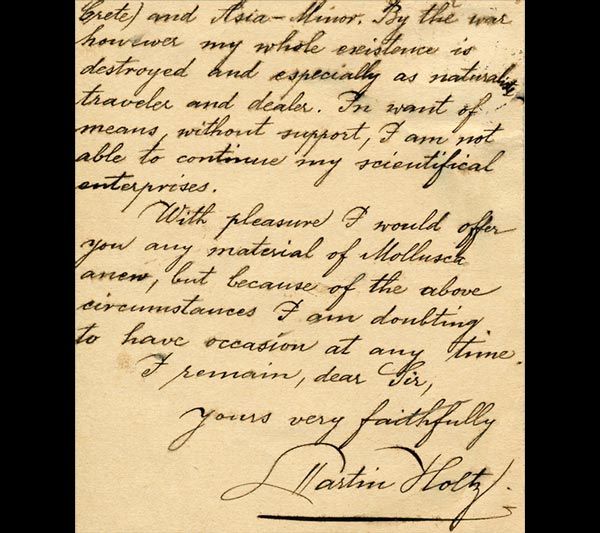 Crete) and Asia-Minor. By the war
however my whole existence is
destroyed and especially as naturalist,
traveler and dealer. In want of
means, without support, I am not
able to continue my scientifical
enterprises.
With pleasure I would offer
you any material of Mollusca
anew, but because of the above
circumstances I am doubting
to have occasion at any time.
I remain, dear Sir,
yours very faithfully
Martin Holtz.